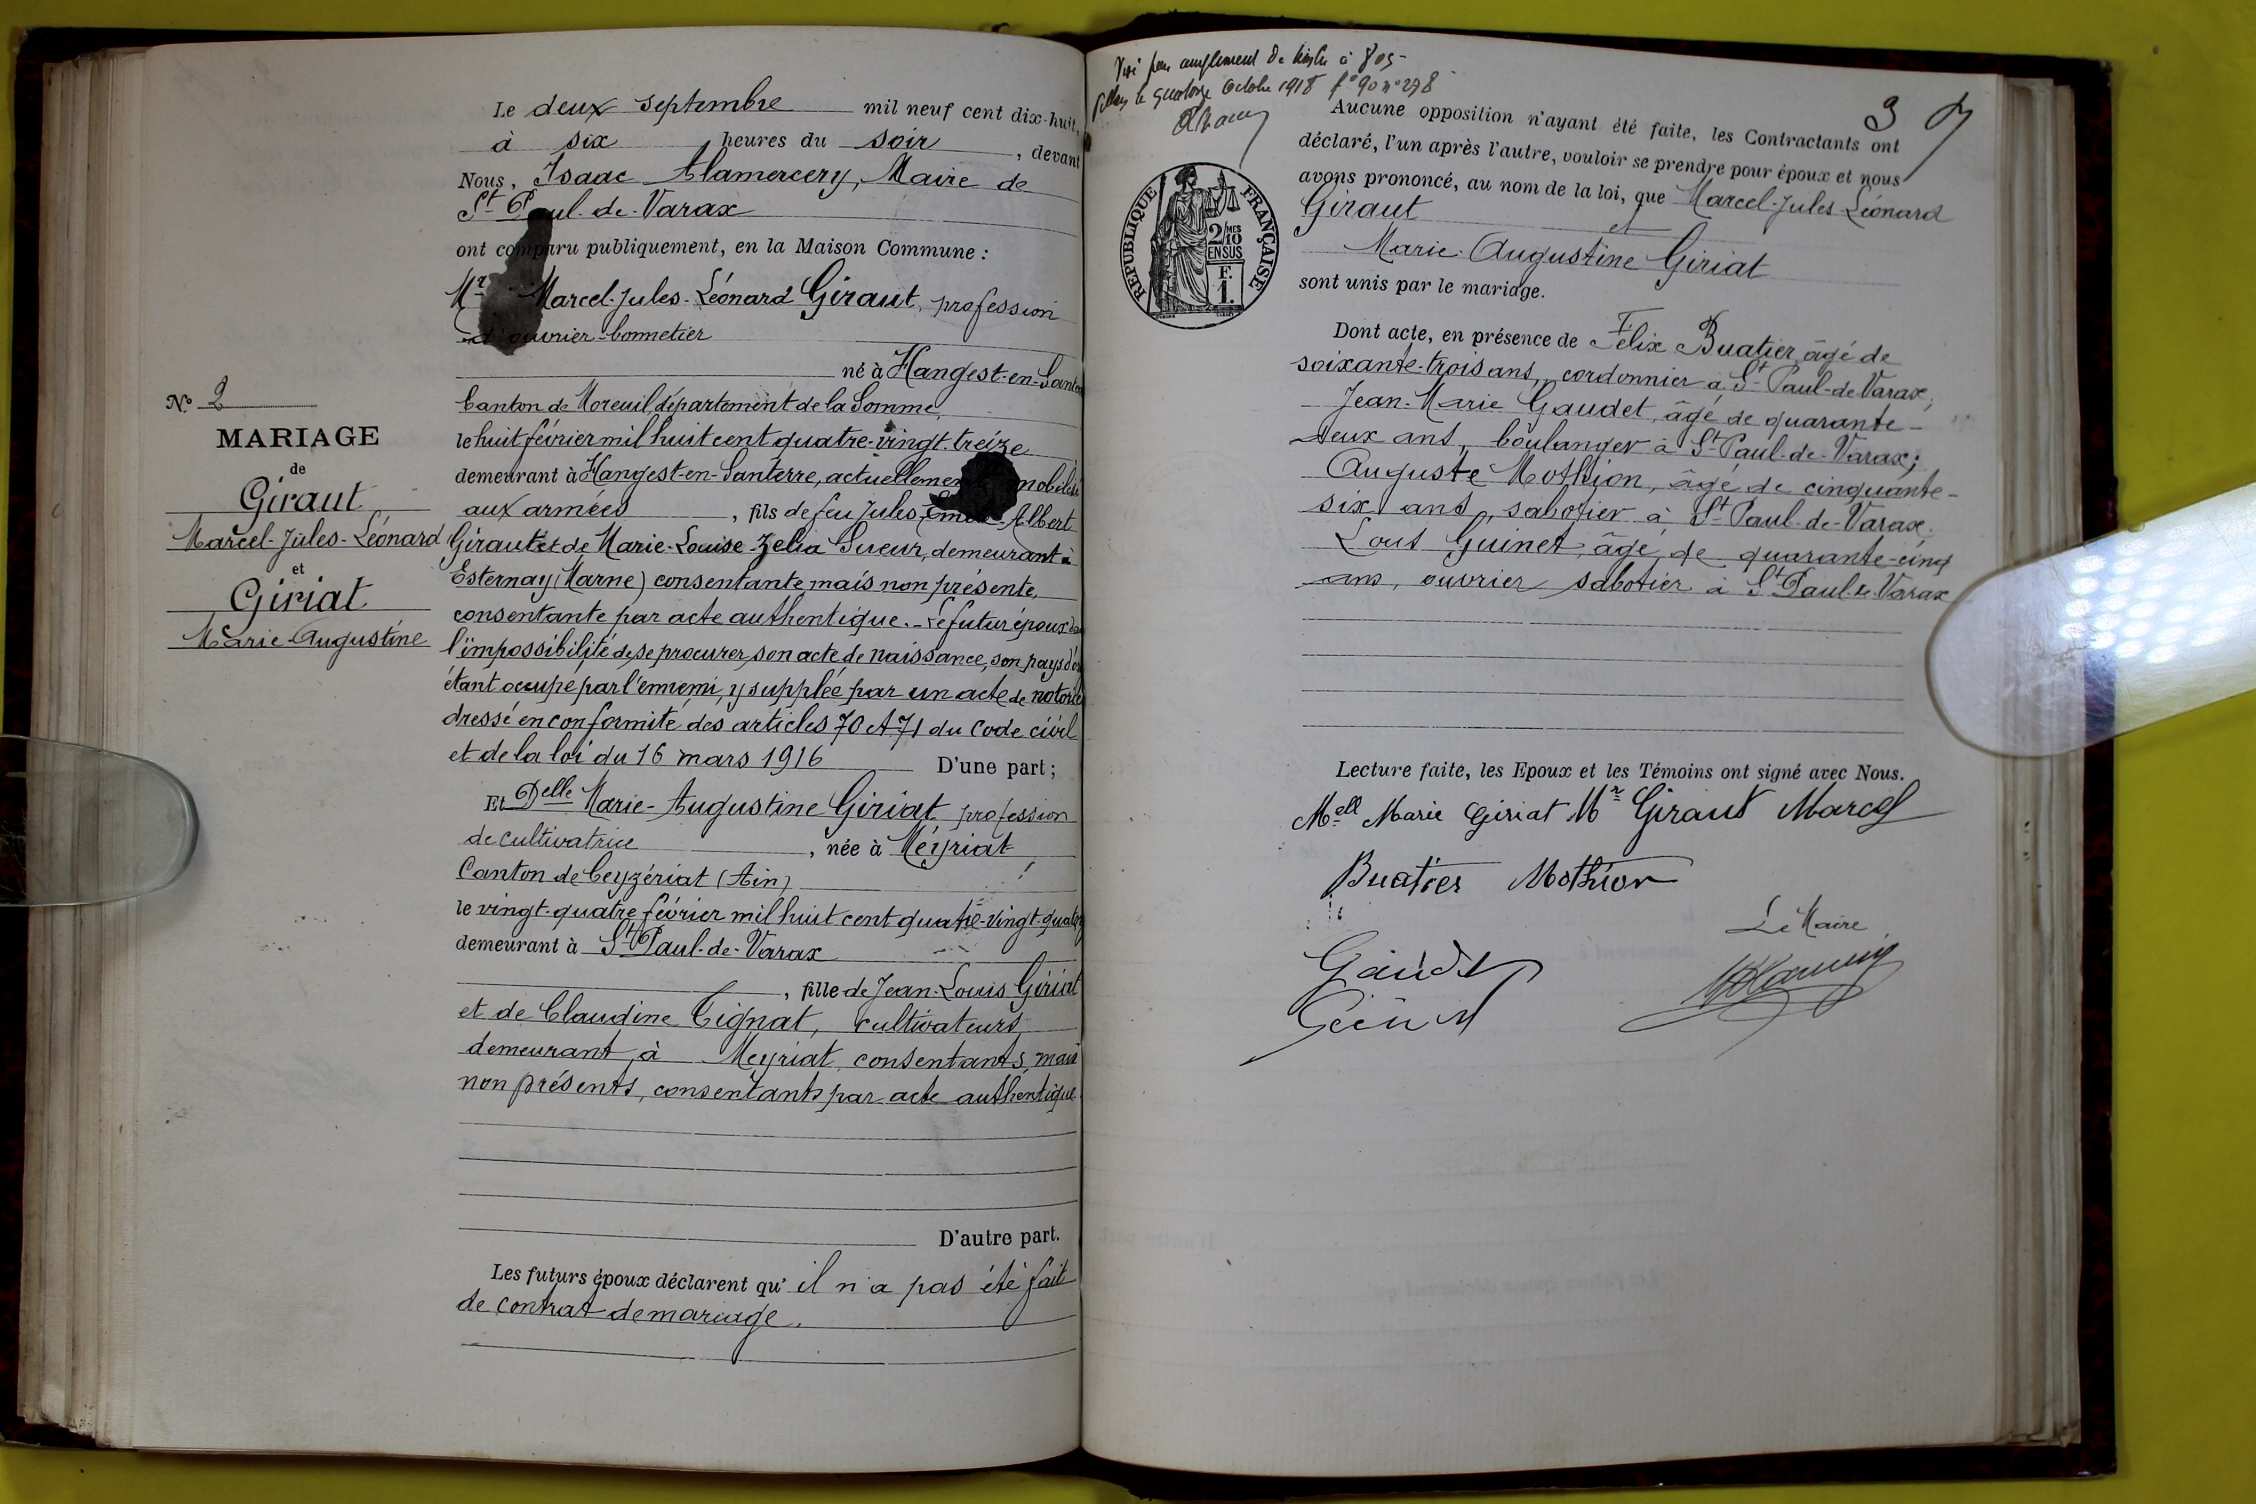 N.º 2
MARIAGE
de
Giraut
Marcel-Jules-Léonard
et
Giriat
Marie-Augustine
Le deux septembre mil neuf cent dix-huit,
à six heures du soir, devant
Nous, Isaac Alamercery, Maire de
St Paul-de-Varax
ont comparu publiquement, en la Maison Commune :
Mr Marcel-Jules-Léonard Giraut, profession
d'ouvrier-bonnetier
né à Hangest-en-Santerre
Canton de Moreuil département de la Somme,
le huit février mil huit cent quatre-vingt-treize
demeurant à Hangest-en-Santerre, actuellement mobilisé
aux armées, fils de feu Jules Albert
Giraut et de Marie-Louise-Zelia Sueur, demeurant à
Esternay (Marne) consentante mais non présente,
consentante par acte authentique. - Le futur époux dans
l'impossibilité de se procurer son acte de naissance, son pays
étant occupé par l'ennemi, y supplée par un acte de notoriété
dressé en conformité des articles 70 et 71 du Code civil
et de la loi du 16 mars 1916 D'une part ;
Et Delle Marie-Augustine Giriat profession
de cultivatrice, née à Meyriat,
Canton de Ceyzériat (Ain)
le vingt-quatre février mil huit cent quatre-vingt-quatorze
demeurant à St Paul-de-Varax
, fille de Jean-Louis Giriat
et de Claudine Tignat, cultivateurs,
demeurant à Meyriat, consentants, mais
non présents, consentants par acte authentique
D'autre part.
Les futurs époux déclarent qu'il n'a pas été fait
de contrat de mariage.
Visé pour complément de timbre à
le quatorze octobre 1918 fº 90 nº 278
3
REPUBLIQUE FRANÇAISE
2/10
MES
EN SUS
F.
1.
Aucune opposition n'ayant été faite, les Contractants ont
déclaré, l'un après l'autre, vouloir se prendre pour époux et nous
avons prononcé, au nom de la loi, que Marcel-Jules Léonard
Giraut et
Marie-Augustine Giriat
sont unis par le mariage.
Dont acte, en présence de Félix Buatier, âgé de
soixante-trois ans, cordonnier à St Paul-de-Varax,
Jean-Marie Gaudet, âgé de quarante-
deux ans, boulanger à St Paul-de-Varax ;
Auguste Mothion, âgé de cinquante-
six ans, sabotier à St Paul-de-Varax.
Louis Guinet, âgé de quarante-cinq
ans, ouvrier sabotier à St Paul-de-Varax
Lecture faite, les Epoux et les Témoins ont signé avec Nous.
Melle Marie Giriat Mr Giraut Marcel
Buatier Mothion
Le Maire
Gaudet
Guinet